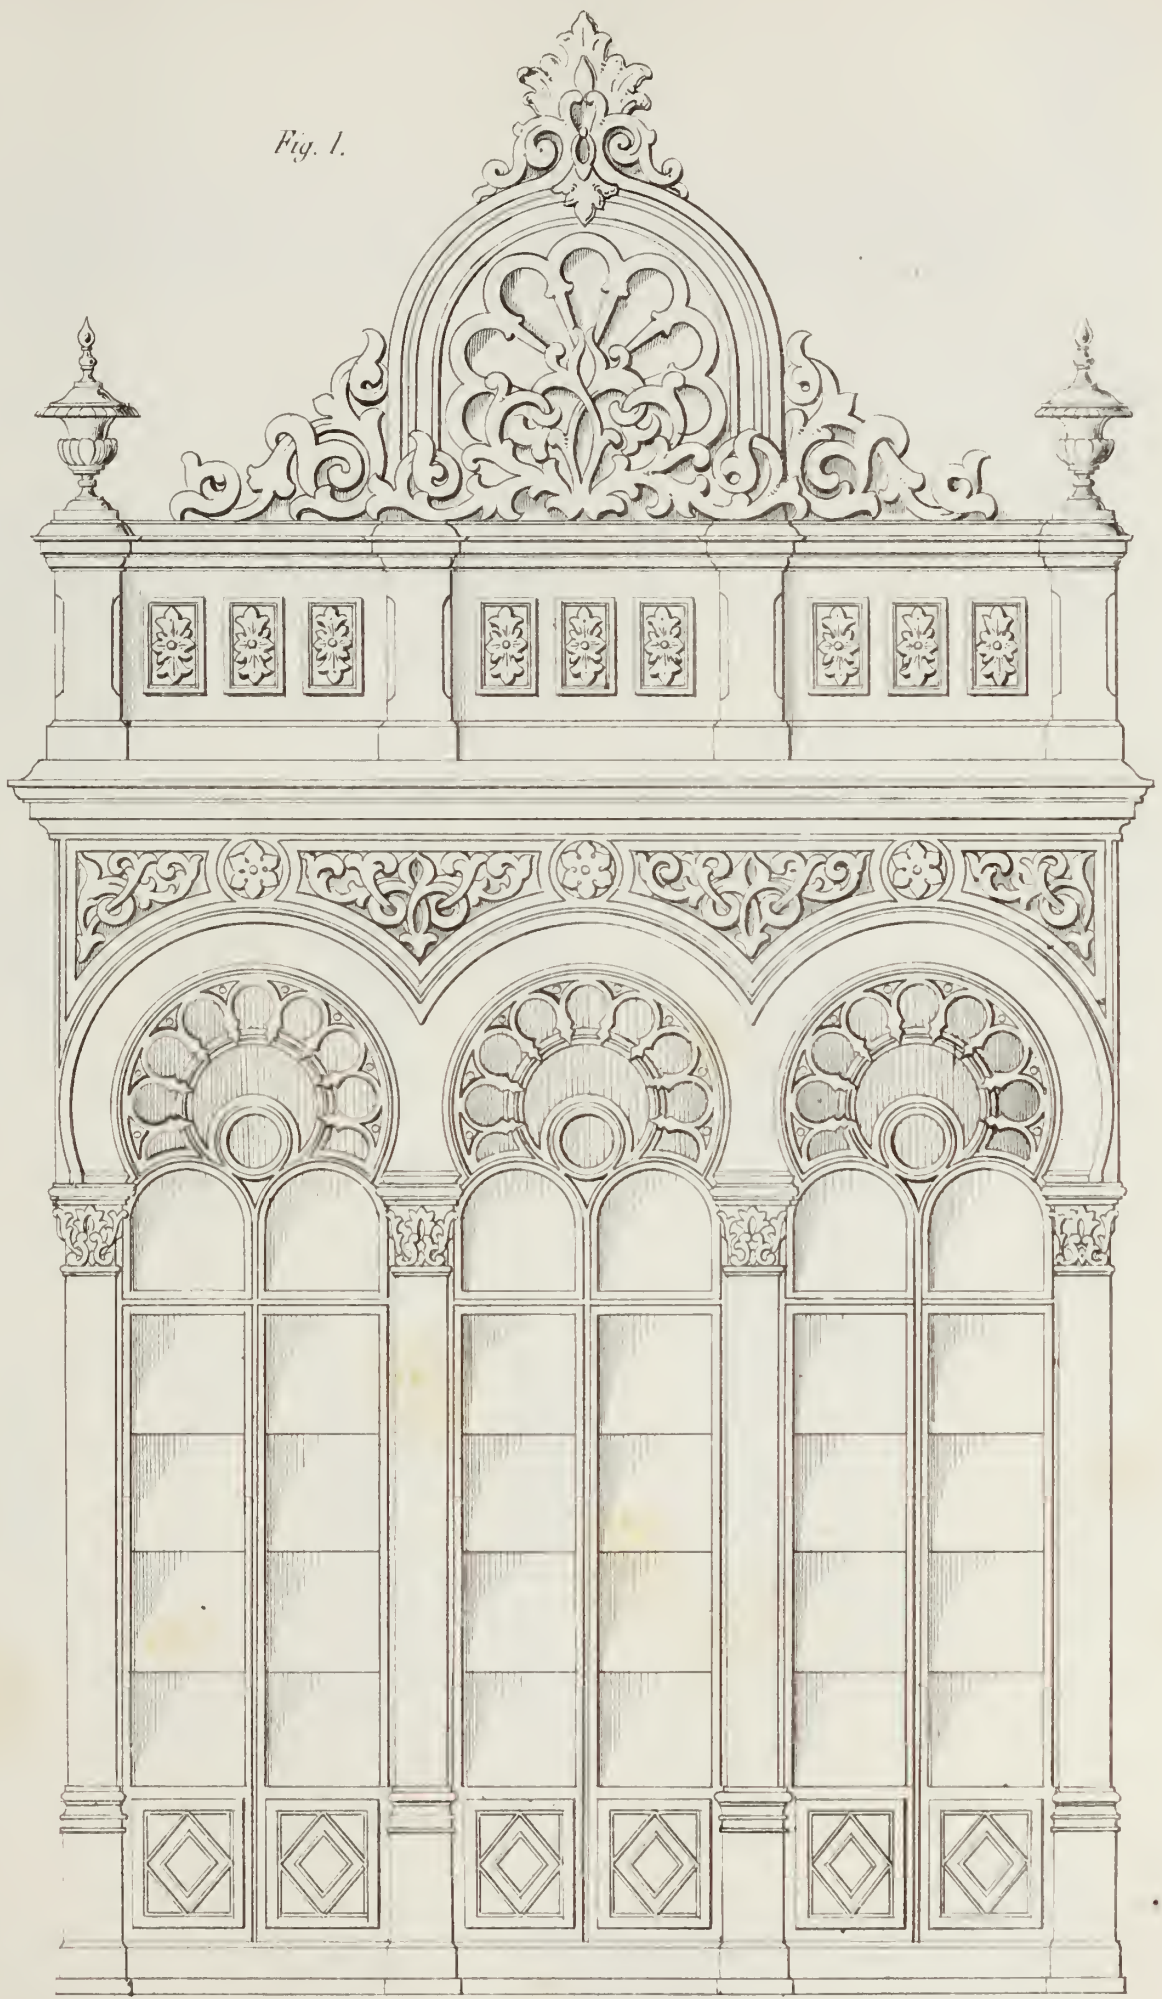 Fig. 1.